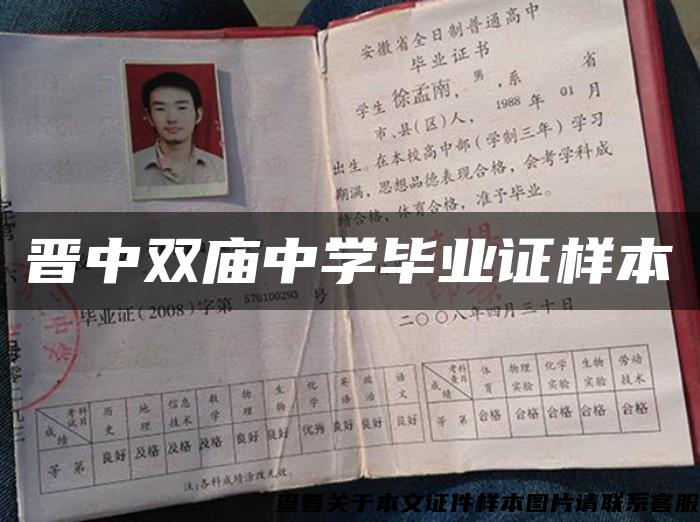 安徽省全日制普通高中
毕业证书
学生徐孟南，男，系 省
市、县(区)人，1988年01月
出生。在本校高中部(学制三年)学习
期满，思想品德表现合格，会考学科成
绩合格，体育合格，准予毕业。
晋中双庙中学毕业证样本
毕业证(2008)字第576100293号
二〇〇八年四月三十日
考试科目 历史 地理 信息技术 数学 物理 生物 化学 英语 政治 语文
成绩
等第 良好 及格 及格 及格 良好 良好 优秀 良好 良好 良好
注:各科成绩涂改无效。
考查科目 体育 物理实验 化学实验 生物实验 劳动技术
成绩
等第 合格 合格 合格 合格 合格
查看关于本文证件样本图片请联系客服